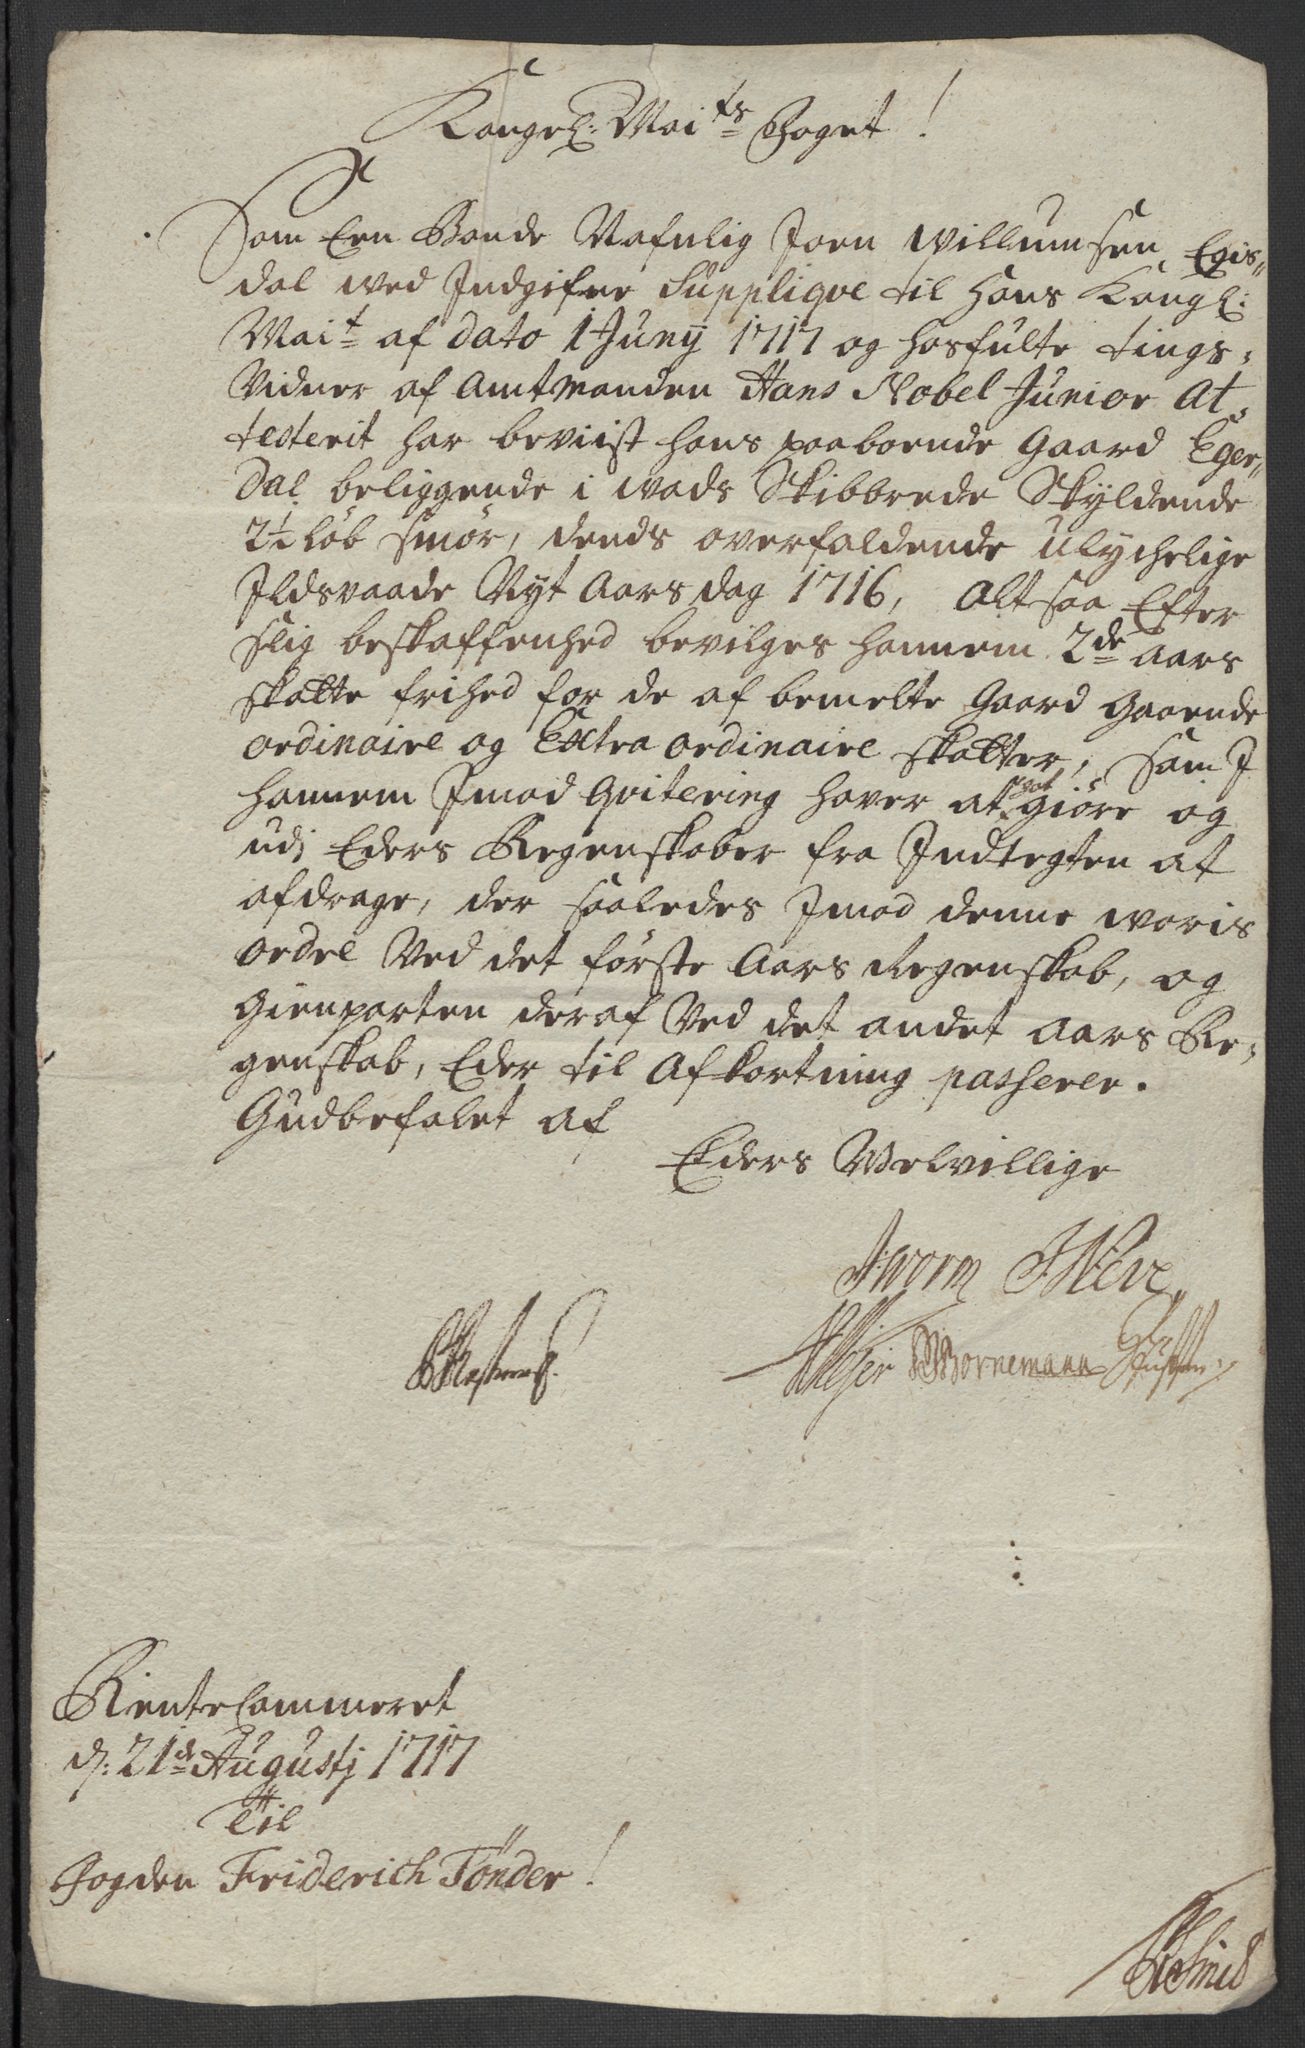 Kongel: Mai<sup>ts</sup> Foget!
Som Een Bonde Nafnlig Joen Willumsen, Egis„
dal ved Indgifne Suppliqve til Hans Kongl:
Mai<sup>t</sup> af dato 1 Junÿ 1717 og hosfulte tings-
Vidner af Amtmanden Hans Nobel Junior At„
testerit har beviist hans paaboende Gaard Eger„
dal beliggende i Wads Skibbrede Skyldende
2½ Løb Smør, dends overfaldende Ulychelige
Ildsvaade Nyt Aars dag 1716, Alt saa Efter
slig beskaffenhed bevilges hannem 2<sup>de</sup> Aars
skatte frihed for de af bemelte Gaard Gaaende
ordinaire og Extra ordinaire skatter, som I
hannem Imod Qvitering haver at got giøre og
udi Eders Regenskaber fra Indtegten at
afdrage, der saaledes Imod denne woris
ordre Ved det første Aars Regenskab, og
Gienparten deraf Ved det andet Aars Re-
genskab, Eder til Afkortning passerer.
Gudbefalet af
Eders Velvillige
JWorm
Bornemann
RenteCammeret
d: 21<sup>de</sup> Augustj 1717
Til
Fogden Friderich Tønder!